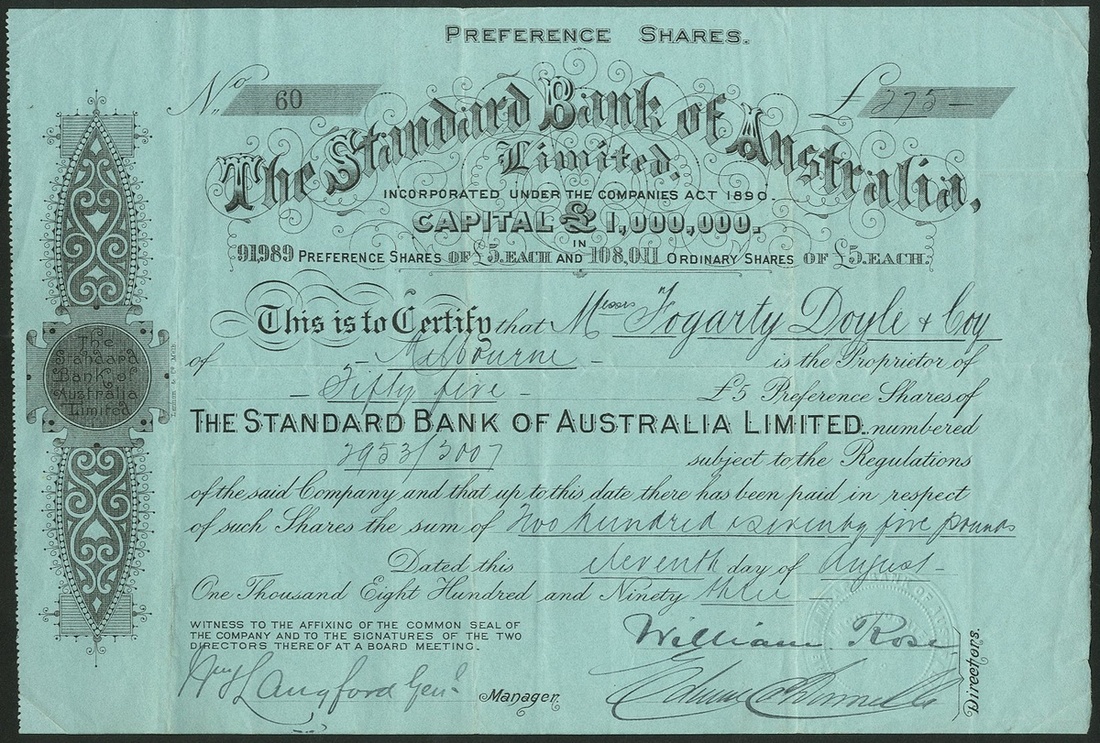 PREFERENCE SHARES.
No 60
£ 275 —
The Standard Bank of Australia,
Limited.
INCORPORATED UNDER THE COMPANIES ACT 1890.
CAPITAL £1,000,000.
IN
91,989 PREFERENCE SHARES OF £5. EACH AND 108,011 ORDINARY SHARES OF £5. EACH.
This is to Certify that Messrs Fogarty Doyle & Coy
of — Melbourne — is the Proprietor of
— Fifty five — £5 Preference Shares of
THE STANDARD BANK OF AUSTRALIA LIMITED. numbered
2953/3007 subject to the Regulations
of the said Company and that up to this date there has been paid in respect
of such Shares the sum of Two hundred & seventy five pounds
Dated this eleventh day of August —
One Thousand Eight Hundred and Ninety three —
WITNESS TO THE AFFIXING OF THE COMMON SEAL OF
THE COMPANY AND TO THE SIGNATURES OF THE TWO
DIRECTORS THEREOF AT A BOARD MEETING.
William Rose
Langford Genl Manager.
Directors.
The
Standard
Bank of
Australia
Limited